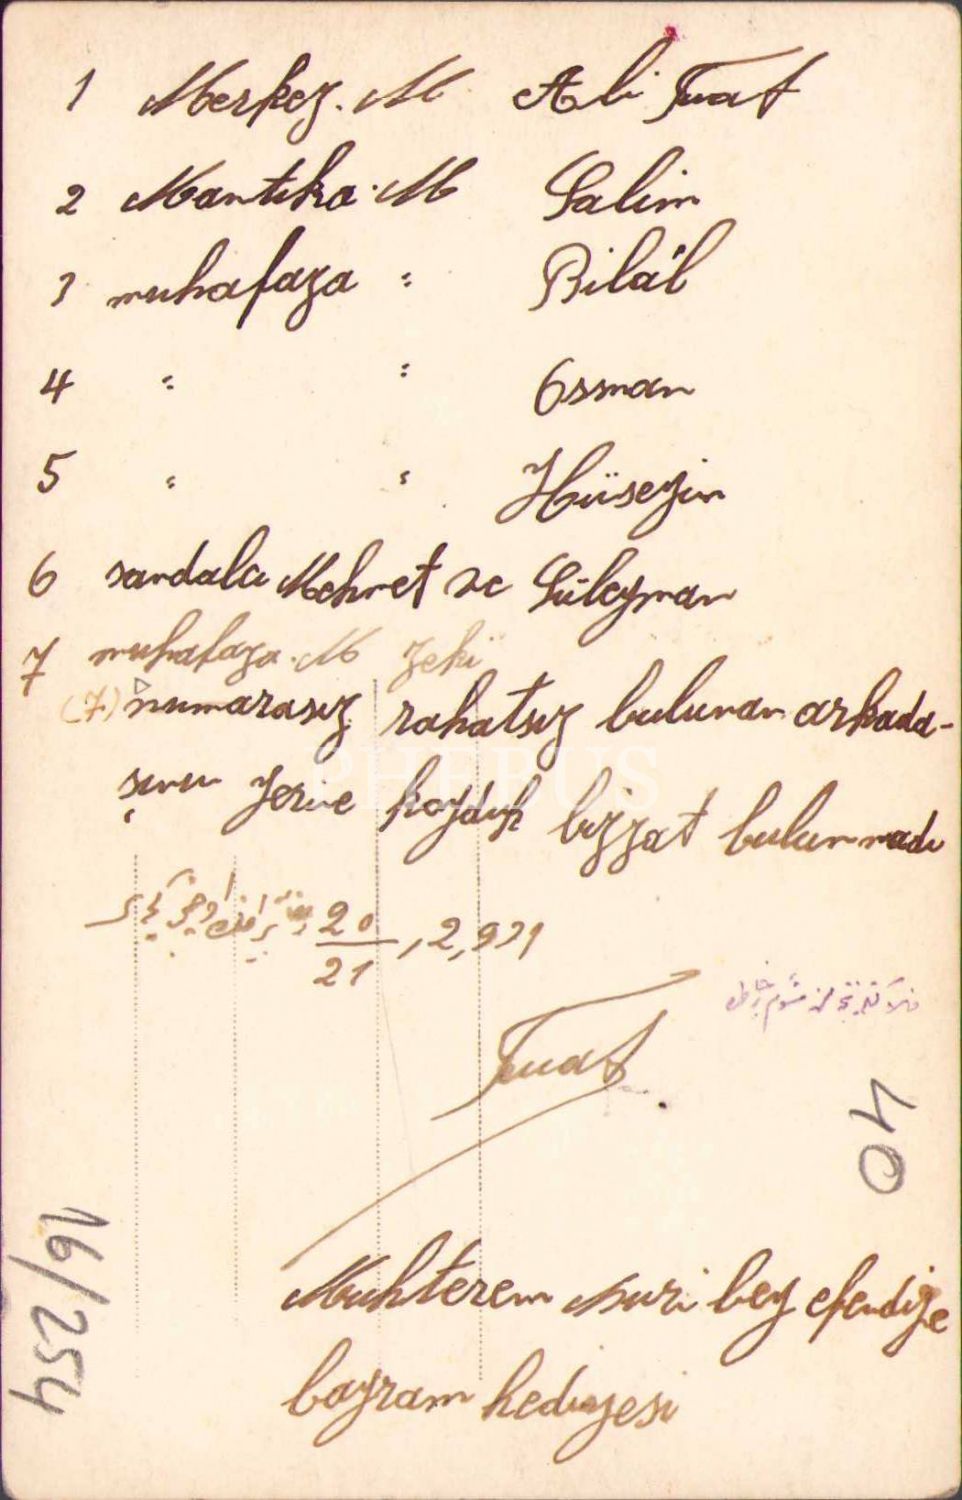 1 Merkez. M Ali Fuat
2 Mantıka. M Salim
3 muhafaza " Bilâl
4 " " Osman
5 " " Hüseyin
6 sandalcı Mehmet ve Süleyman
7 muhafaza. M Zeki
(7) numarasız rahatsız bulunan arkada-
şının yerine koyduk bizzat bulunmadı
20/21, 2, 931
Fuat
40
16/254
Muhterem Nuri bey efendiye
bayram hediyesi
PHEBUS